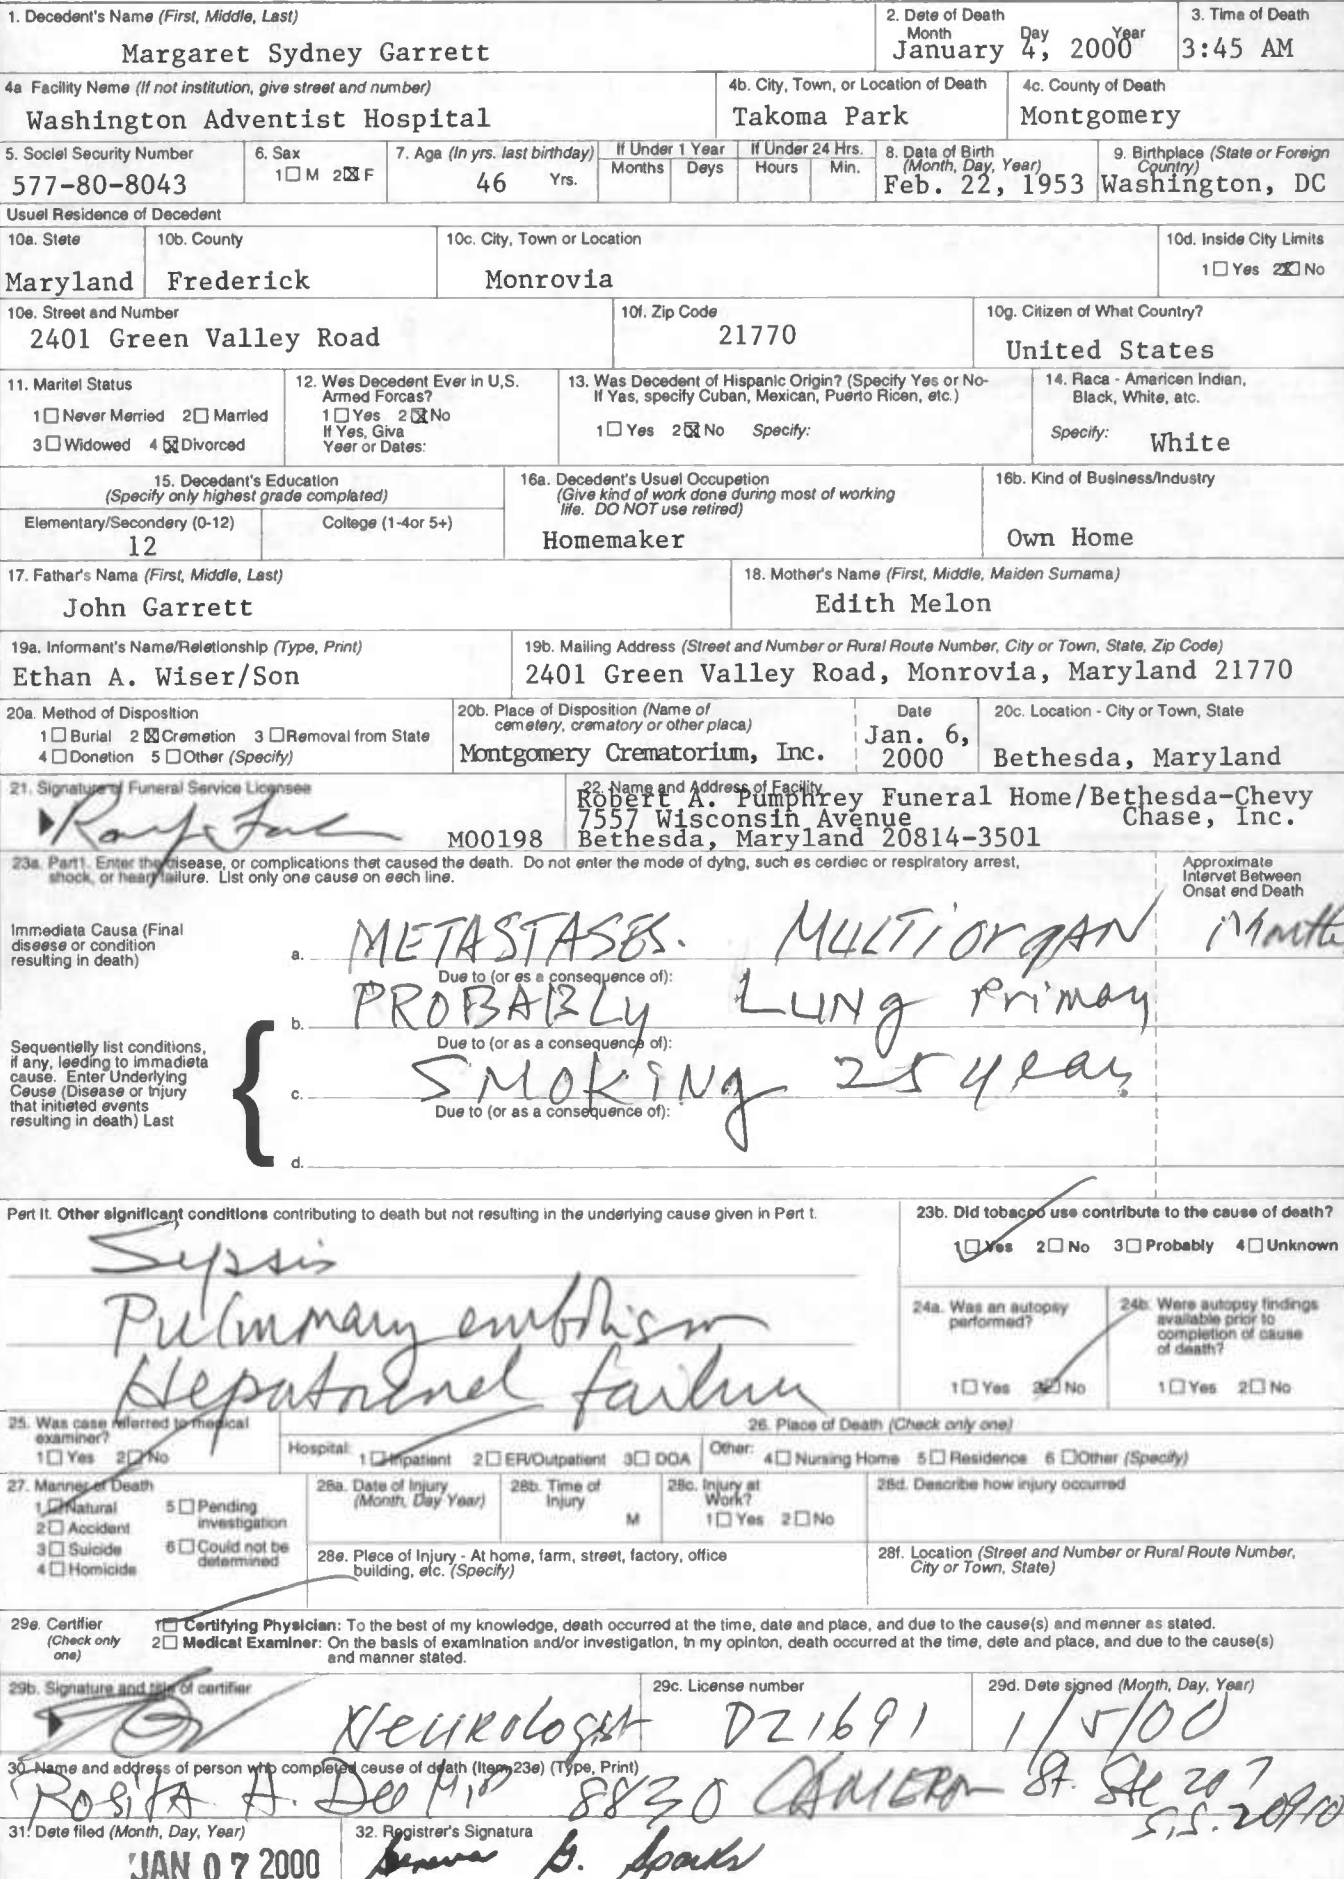 1. Decedent's Name (First, Middle, Last)
Margaret Sydney Garrett
2. Date of Death
Month Day Year
January 4, 2000
3. Time of Death
3:45 AM
4a Facility Name (If not institution, give street and number)
Washington Adventist Hospital
4b. City, Town, or Location of Death
Takoma Park
4c. County of Death
Montgomery
5. Social Security Number
577-80-8043
6. Sex
1☐ M 2☒ F
7. Age (In yrs. last birthday)
46 Yrs.
If Under 1 Year
Months Days
If Under 24 Hrs.
Hours Min.
8. Date of Birth
(Month, Day, Year)
Feb. 22, 1953
9. Birthplace (State or Foreign
Country)
Washington, DC
Usual Residence of Decedent
10a. State
Maryland
10b. County
Frederick
10c. City, Town or Location
Monrovia
10d. Inside City Limits
1☐ Yes 2☒ No
10e. Street and Number
2401 Green Valley Road
10f. Zip Code
21770
10g. Citizen of What Country?
United States
11. Marital Status
1☐ Never Married 2☐ Married
3☐ Widowed 4☒ Divorced
12. Was Decedent Ever in U.S.
Armed Forces?
1☐ Yes 2☒ No
If Yes, Give
Year or Dates:
13. Was Decedent of Hispanic Origin? (Specify Yes or No-
If Yes, specify Cuban, Mexican, Puerto Rican, etc.)
1☐ Yes 2☒ No Specify:
14. Race - American Indian,
Black, White, etc.
Specify: White
15. Decedent's Education
(Specify only highest grade completed)
Elementary/Secondary (0-12) College (1-4or 5+)
12
16a. Decedent's Usual Occupation
(Give kind of work done during most of working
life. DO NOT use retired)
Homemaker
16b. Kind of Business/Industry
Own Home
17. Father's Name (First, Middle, Last)
John Garrett
18. Mother's Name (First, Middle, Maiden Surname)
Edith Melon
19a. Informant's Name/Relationship (Type, Print)
Ethan A. Wiser/Son
19b. Mailing Address (Street and Number or Rural Route Number, City or Town, State, Zip Code)
2401 Green Valley Road, Monrovia, Maryland 21770
20a. Method of Disposition
1☐ Burial 2☒ Cremation 3☐ Removal from State
4☐ Donation 5☐ Other (Specify)
20b. Place of Disposition (Name of
cemetery, crematory or other place)
Montgomery Crematorium, Inc.
Date
Jan. 6,
2000
20c. Location - City or Town, State
Bethesda, Maryland
21. Signature of Funeral Service Licensee
M00198
22. Name and Address of Facility
Robert A. Pumphrey Funeral Home/Bethesda-Chevy
7557 Wisconsin Avenue Chase, Inc.
Bethesda, Maryland 20814-3501
23a. Part I. Enter the disease, or complications that caused the death. Do not enter the mode of dying, such as cardiac or respiratory arrest,
shock, or heart failure. List only one cause on each line.
Approximate
Interval Between
Onset and Death
Immediate Cause (Final
disease or condition
resulting in death)
a. METASTASES. MULTiorgAN
Due to (or as a consequence of):
b. PROBABLY LUNG Primary
Due to (or as a consequence of):
Sequentially list conditions,
if any, leading to immediate
cause. Enter Underlying
Cause (Disease or injury
that initiated events
resulting in death) Last
c. SMOKING 25 years
Due to (or as a consequence of):
d.
Part II. Other significant conditions contributing to death but not resulting in the underlying cause given in Part I.
Sepsis
Pulmonary embolism
Hepatorenal failure
23b. Did tobacco use contribute to the cause of death?
1☑ Yes 2☐ No 3☐ Probably 4☐ Unknown
24a. Was an autopsy
performed?
1☐ Yes 2☑ No
24b. Were autopsy findings
available prior to
completion of cause
of death?
1☐ Yes 2☐ No
25. Was case referred to medical
examiner?
1☐ Yes 2☑ No
26. Place of Death (Check only one)
Hospital: 1☑ Inpatient 2☐ ER/Outpatient 3☐ DOA Other: 4☐ Nursing Home 5☐ Residence 6☐ Other (Specify)
27. Manner of Death
1☑ Natural 5☐ Pending
investigation
2☐ Accident
3☐ Suicide 6☐ Could not be
determined
4☐ Homicide
28a. Date of Injury
(Month, Day Year)
28b. Time of
Injury
M
28c. Injury at
Work?
1☐ Yes 2☐ No
28d. Describe how injury occurred
28e. Place of Injury - At home, farm, street, factory, office
building, etc. (Specify)
28f. Location (Street and Number or Rural Route Number,
City or Town, State)
29a. Certifier
(Check only
one)
1☑ Certifying Physician: To the best of my knowledge, death occurred at the time, date and place, and due to the cause(s) and manner as stated.
2☐ Medical Examiner: On the basis of examination and/or investigation, in my opinion, death occurred at the time, date and place, and due to the cause(s)
and manner stated.
29b. Signature and title of certifier
Neurologist
29c. License number
D21691
29d. Date signed (Month, Day, Year)
1/5/00
30. Name and address of person who completed cause of death (Item 23a) (Type, Print)
Rosita A. Dee MD 8830 CAMERON St. Ste 207
S.S. 20910
31. Date filed (Month, Day, Year)
JAN 07 2000
32. Registrar's Signature
Geneva G. Sparks